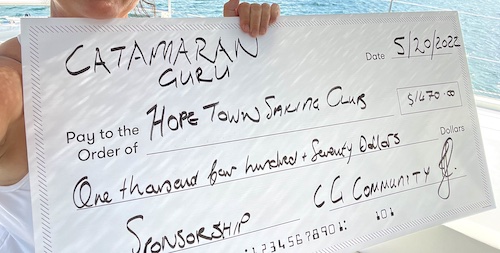 CATAMARAN
GURU
Date 5/20/2022
Pay to the
Order of
HOPE TOWN SAILING CLUB
$1470.00
One thousand four hundred + Seventy Dollars
Dollars
SPONSORSHIP
CG COMMUNITY
1234567890
101